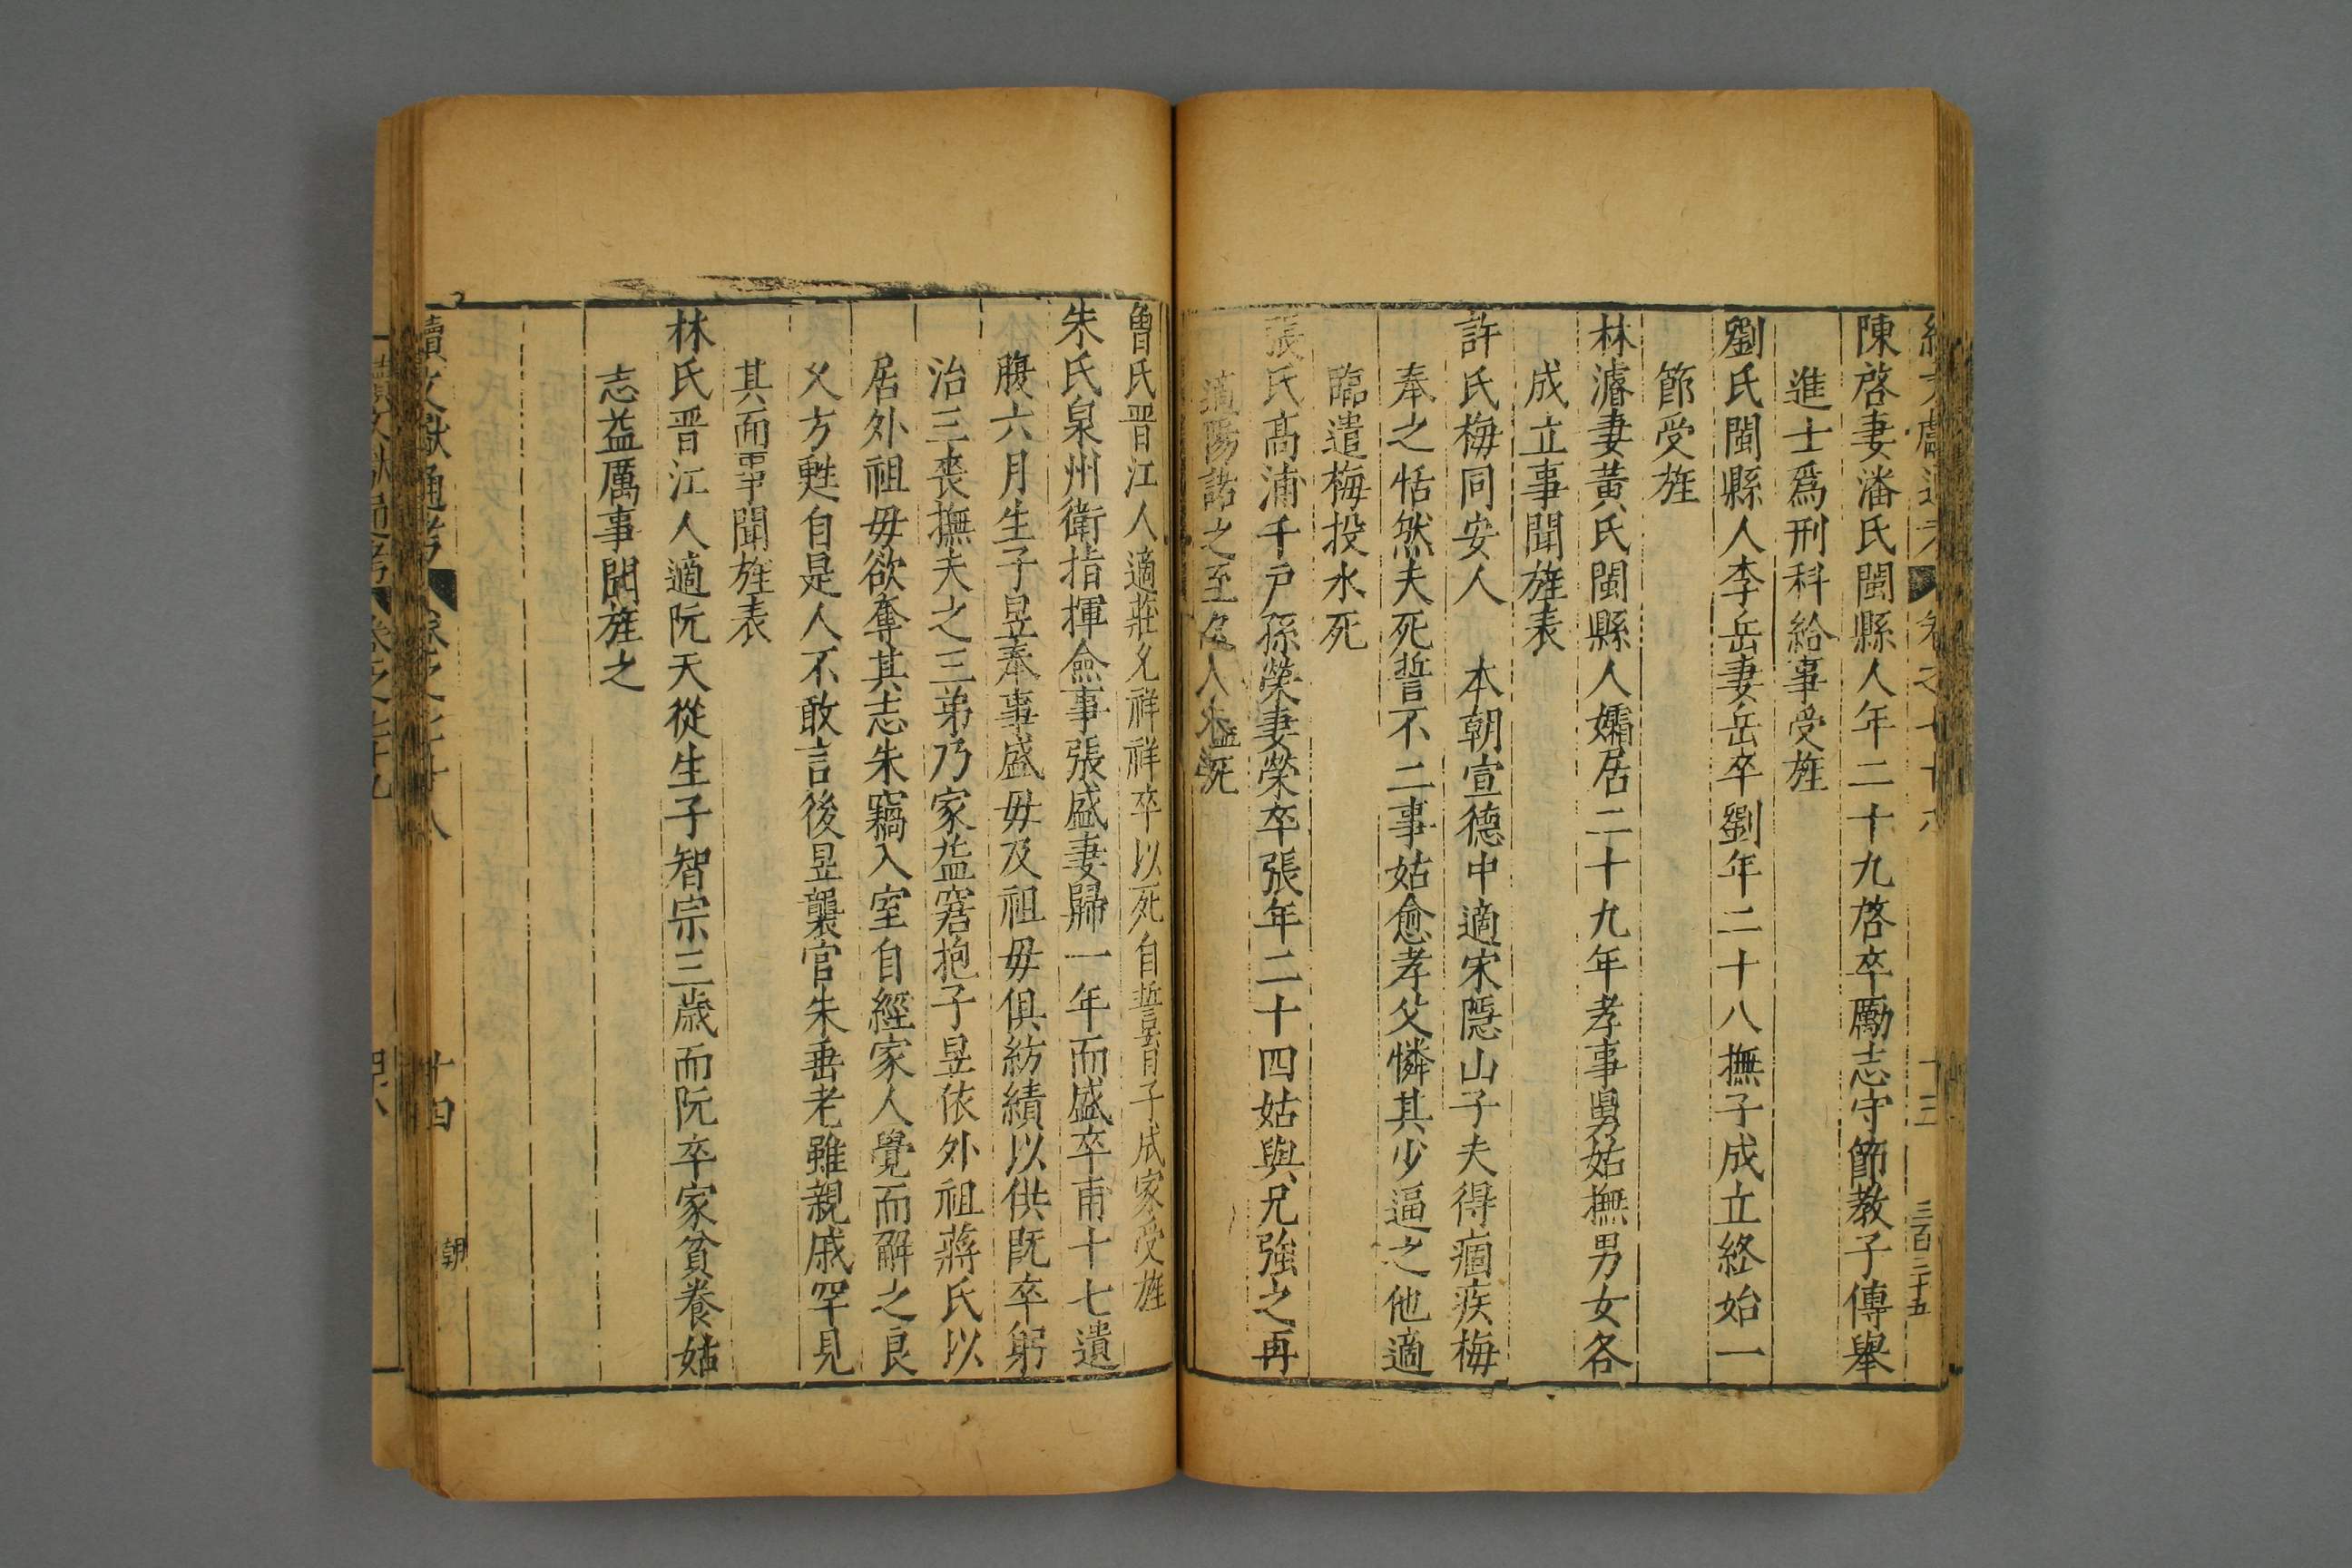 陳啓妻潘氏閩縣人年二十九啓卒勵志守節教子傳舉
進士爲刑科給事受旌
劉氏閩縣人李岳妻岳卒劉年二十八撫子成立終始一
節受旌
林濬妻黃氏閩縣人孀居二十九年孝事舅姑撫男女各
成立事聞旌表
許氏梅同安人 本朝宣德中適宋隠山子夫得痼疾梅
奉之恬然夫死誓不二事姑愈孝父憐其少逼之他適
臨遣梅投水死
張氏髙浦千戸孫榮妻榮卒張年二十四姑與兄強之再
適陽諾之至夜人水溢死
魯氏晋江人適莊允祥祥卒以死自誓育子成家受旌
朱氏泉州衛指揮僉事張盛妻歸一年而盛卒甫十七遺
腹六月生子昱奉事盛毋及祖毋俱紡績以供旣卒躬
治三喪撫夫之三弟乃家益窘抱子昱依外祖蔣氏以
居外祖毋欲奪其志朱竊入室自經家人覺而觧之良
乆方甦自是人不敢言後昱襲官朱垂老雖親戚罕見
其面事聞旌表
林氏晋江人適阮天從生子智宗三歲而阮卒家貧養姑
志益厲事聞旌之
續文獻通考 卷之七十八 十四 朝